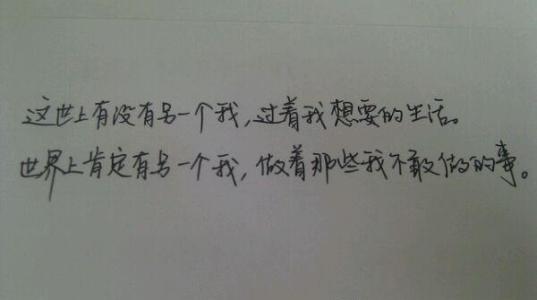 这世上有没有另一个我,过着我想要的生活。
世界上肯定有另一个我,做着那些我不敢做的事。